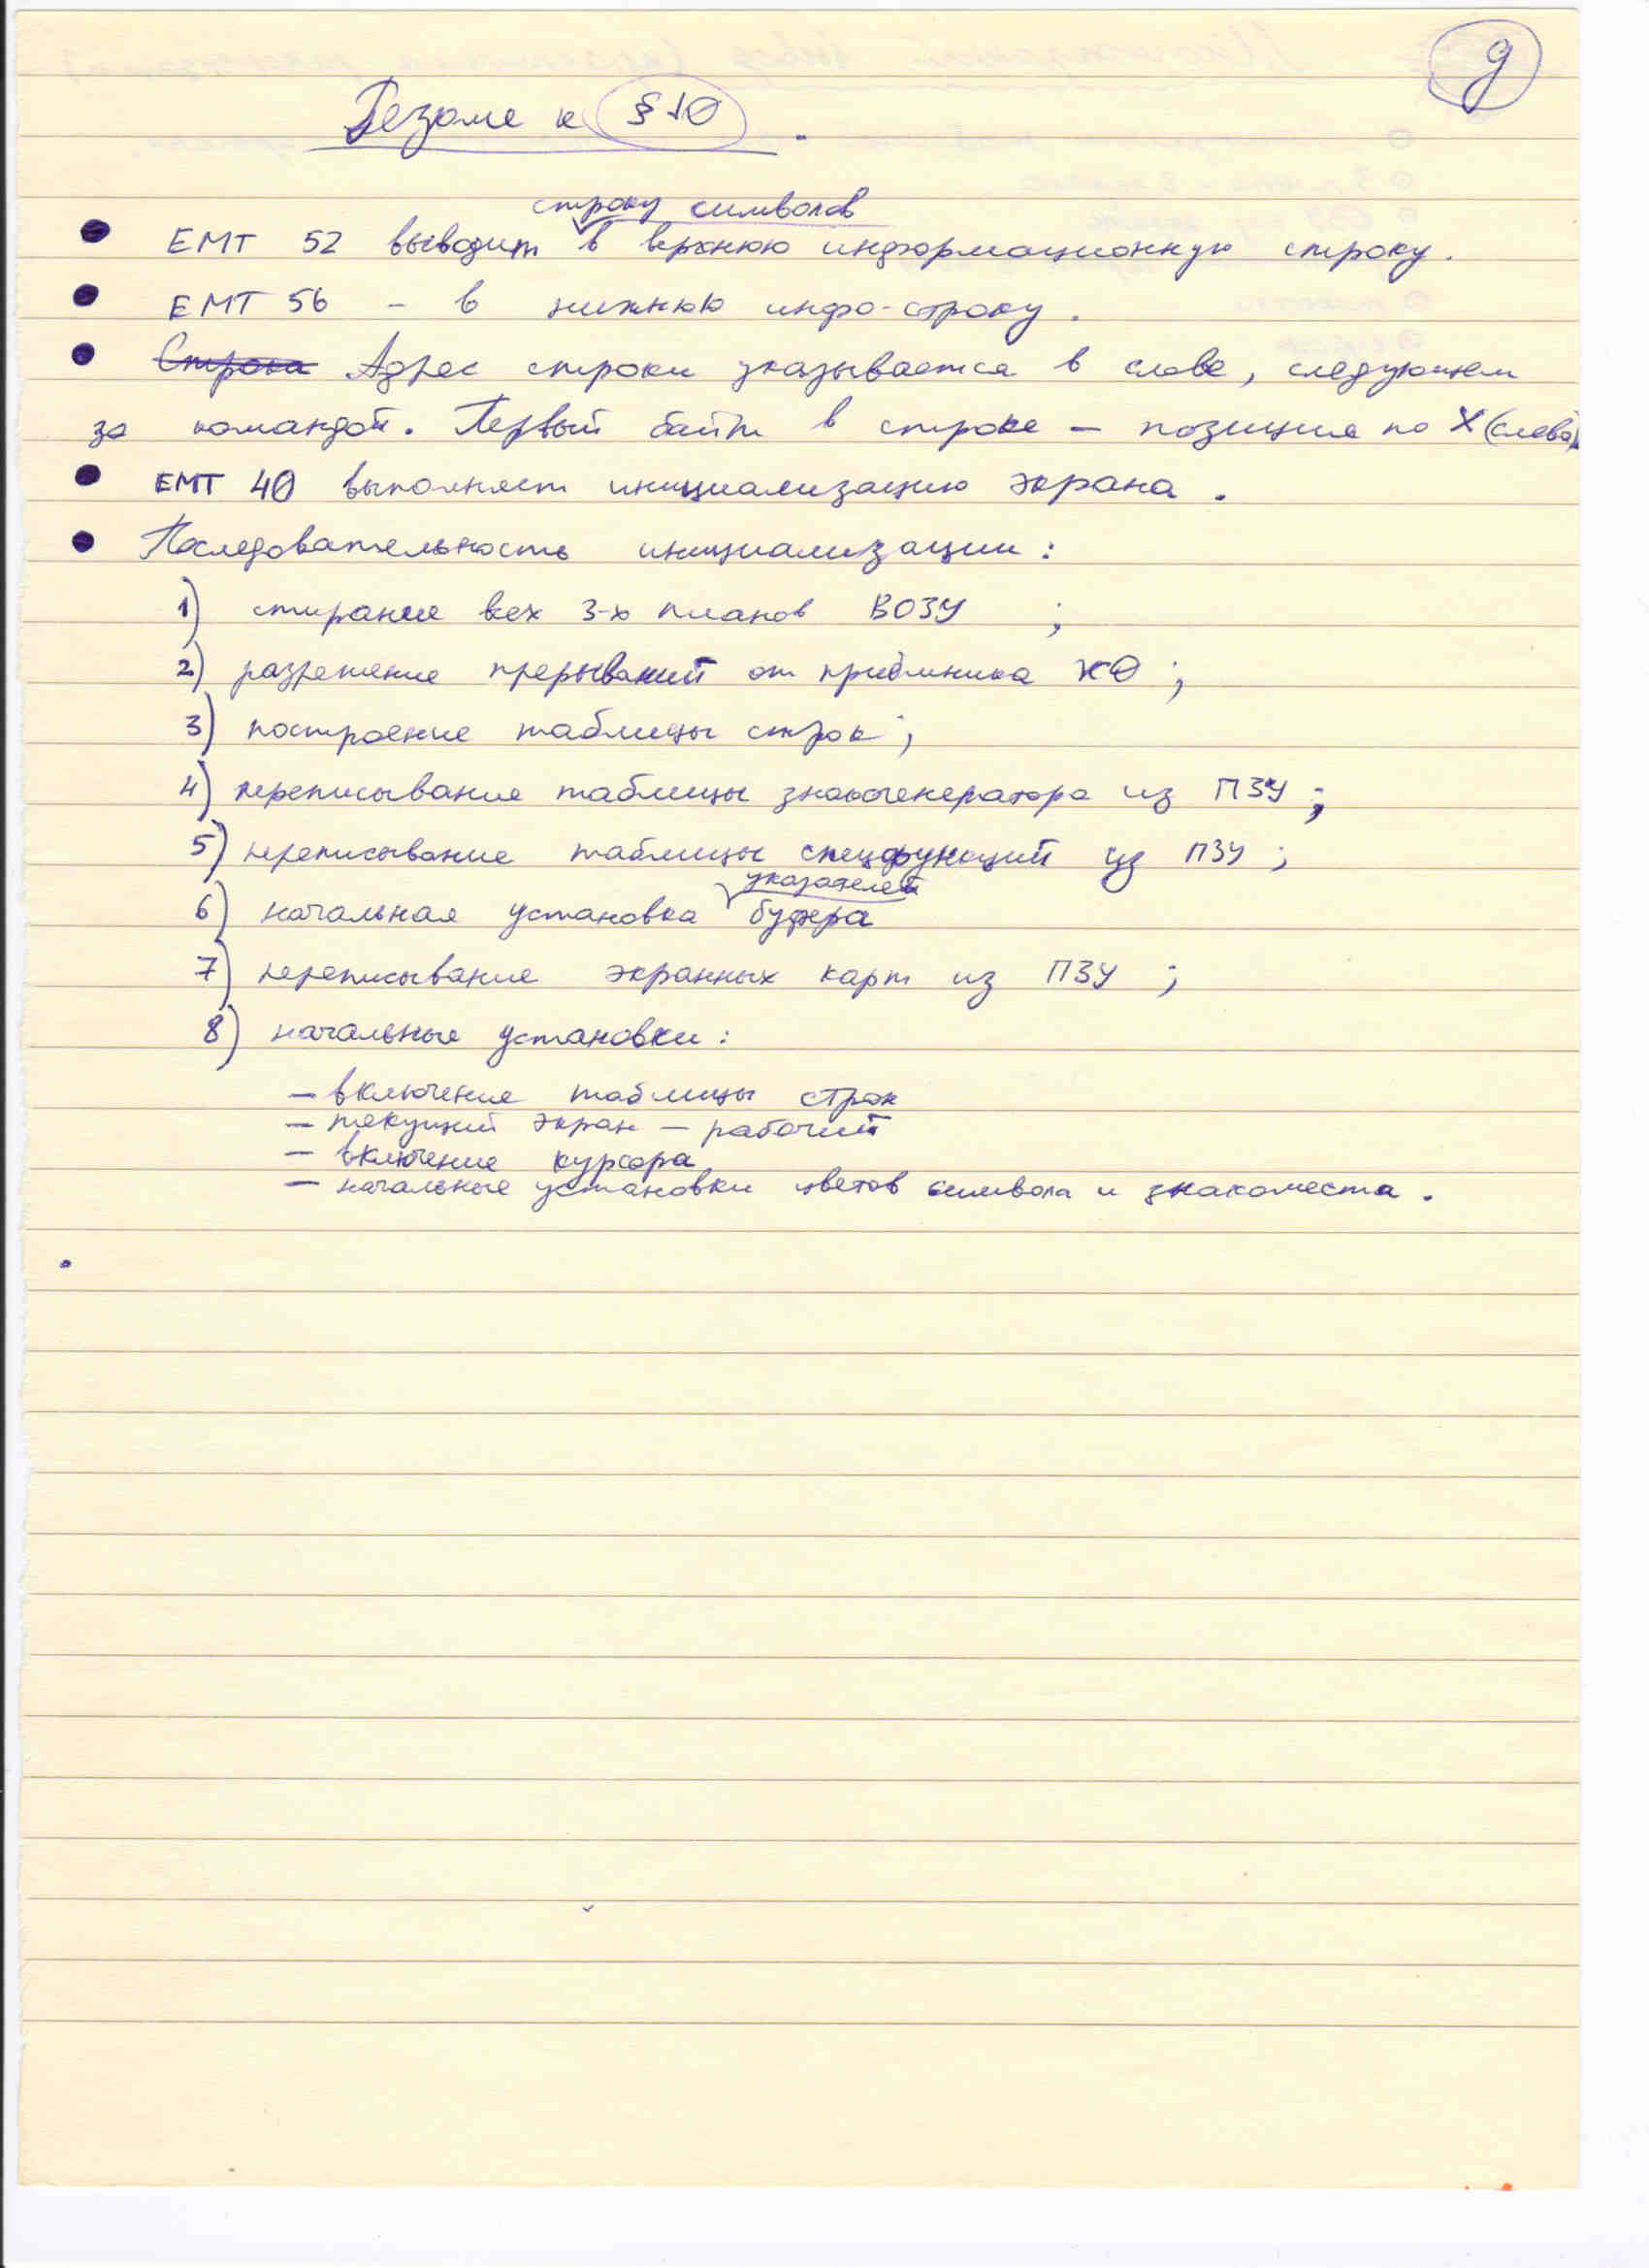 9
Резюме к § 10.
строку символов
• ЕМТ 52 выводит в верхнюю информационную строку.
• ЕМТ 56 – в нижнюю инфо-строку.
• Строка Адрес строки указывается в слове, следующем
за командой. Первый байт в строке – позиция по X (слева).
• ЕМТ 40 выполняет инициализацию экрана.
• Последовательность инициализации:
1) стирание всех 3-х планов ВОЗУ ;
2) разрешение прерываний от приёмника К0 ;
3) построение таблицы строк ;
4) переписывание таблицы знакогенератора из ПЗУ ;
5) переписывание таблицы спецфункций из ПЗУ ;
указателей
6) начальная установка буфера
7) переписывание экранных карт из ПЗУ ;
8) начальные установки :
– включение таблицы строк
– текущий экран – рабочий
– включение курсора
– начальные установки цветов символа и знакоместа .